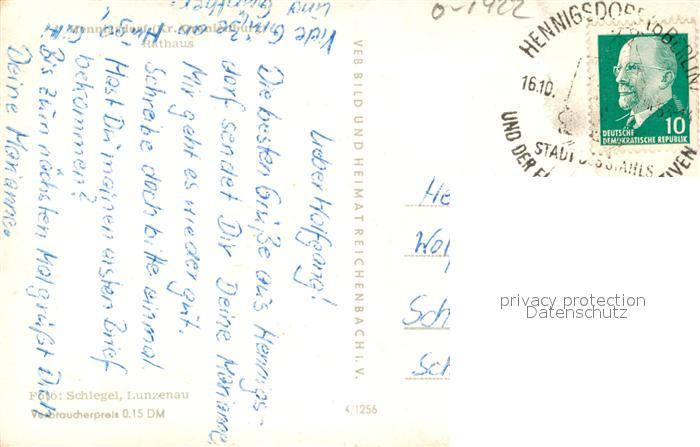 Hennigsdorf (Kr. Oranienburg)
Rathaus
Lieber Wolfgang!
Die besten Grüße aus Hennigs-
dorf sendet Dir Deine Marianne.
Mir geht es wieder gut.
Schreibe doch bitte einmal.
Hast Du meinen ersten Brief
bekommen?
Bis zum nächsten Mal grüßt Dich
Deine Marianne.
Viele Grüße
und
Foto: Schlegel, Lunzenau
Verbraucherpreis 0.15 DM
VEB BILD UND HEIMAT REICHENBACH I. V.
4/1256
0-1422
HENNIGSDORF
BERLIN
16.10.
STADT DES STAHLS
UND DER
10
DEUTSCHE
DEMOKRATISCHE REPUBLIK
He
Wol
Sch
Sch
privacy protection
Datenschutz